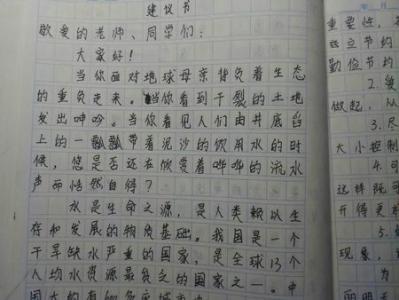 建议书
敬爱的老师、同学们：
大家好！
当你面对地球母亲背负着生态
的重负走来。当你看到干裂的土地
发出呻吟。当你看见人们由井底舀
上的一瓢瓢带着泥沙的饮用水的时
候，您是否还在欣受着哗哗的流水
声而恬然自得？
水是生命之源，是人类赖以生
存和发展的物质基础。我国是一个
干旱缺水严重的国家，是全球13个
人均水资源最贫乏的国家之一。中
国大约有
重要性，
应立节约
勤俭节约
2.
做起，从
3.尽
大小控制
4.可
这样既可
开得更
5.
现象，
为